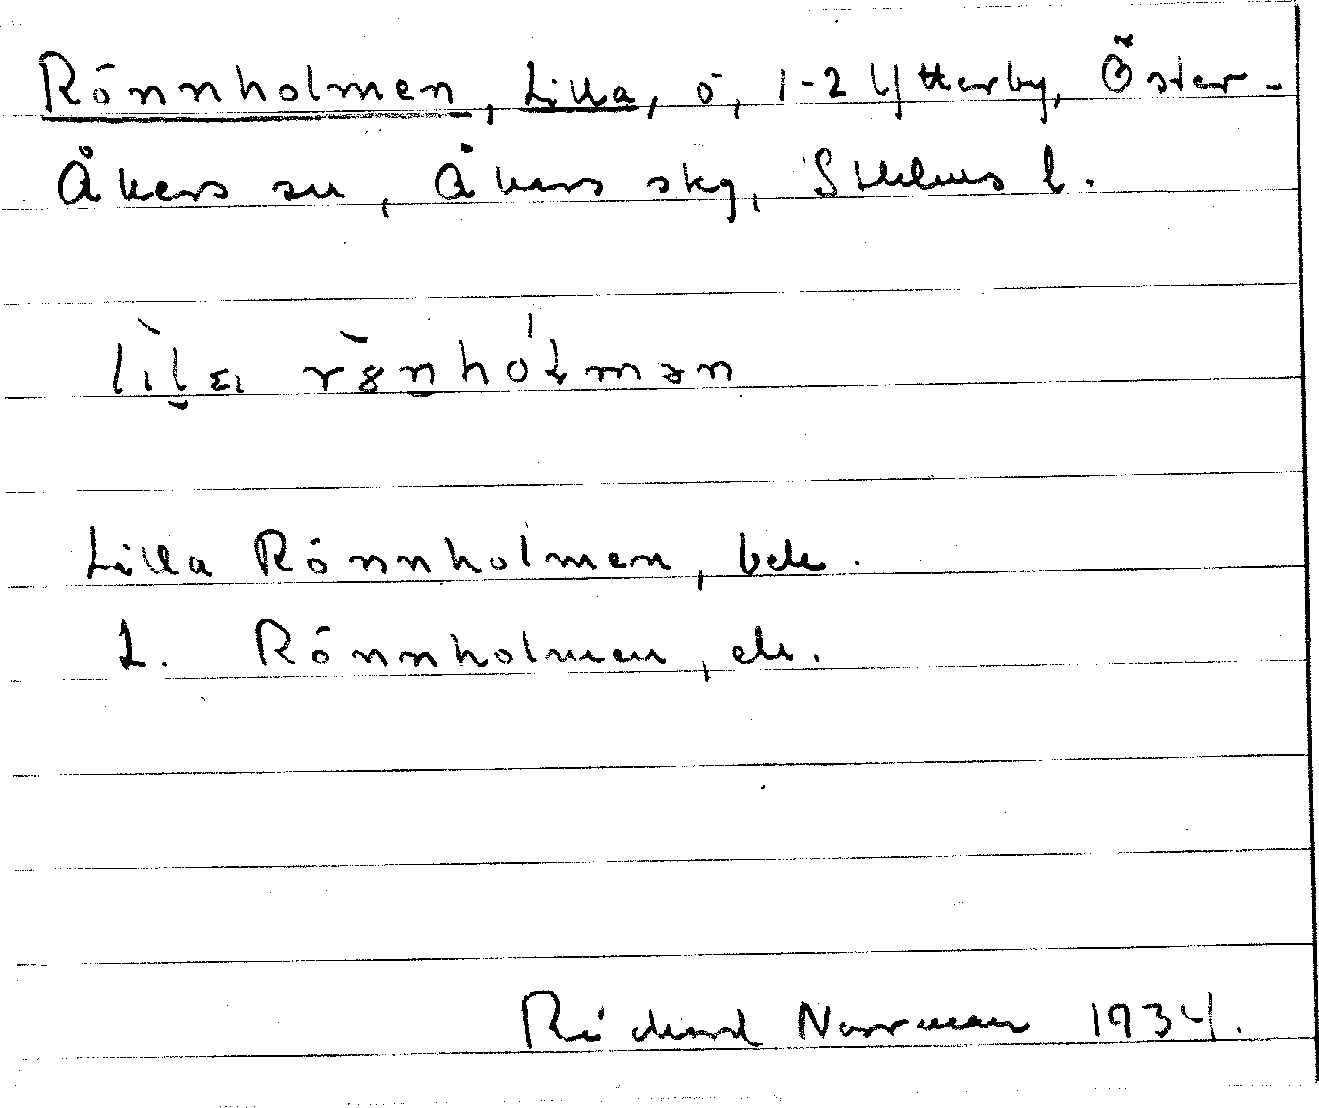 Rönnholmen, Lilla, ö, 1-2 Ytterby, Öster-
Åkers sn, Åkers skg, Sthlms l.
Lilla Rönnholmen, bek.
L. Rönnholmen, ek.
Richard Norrman 1934.